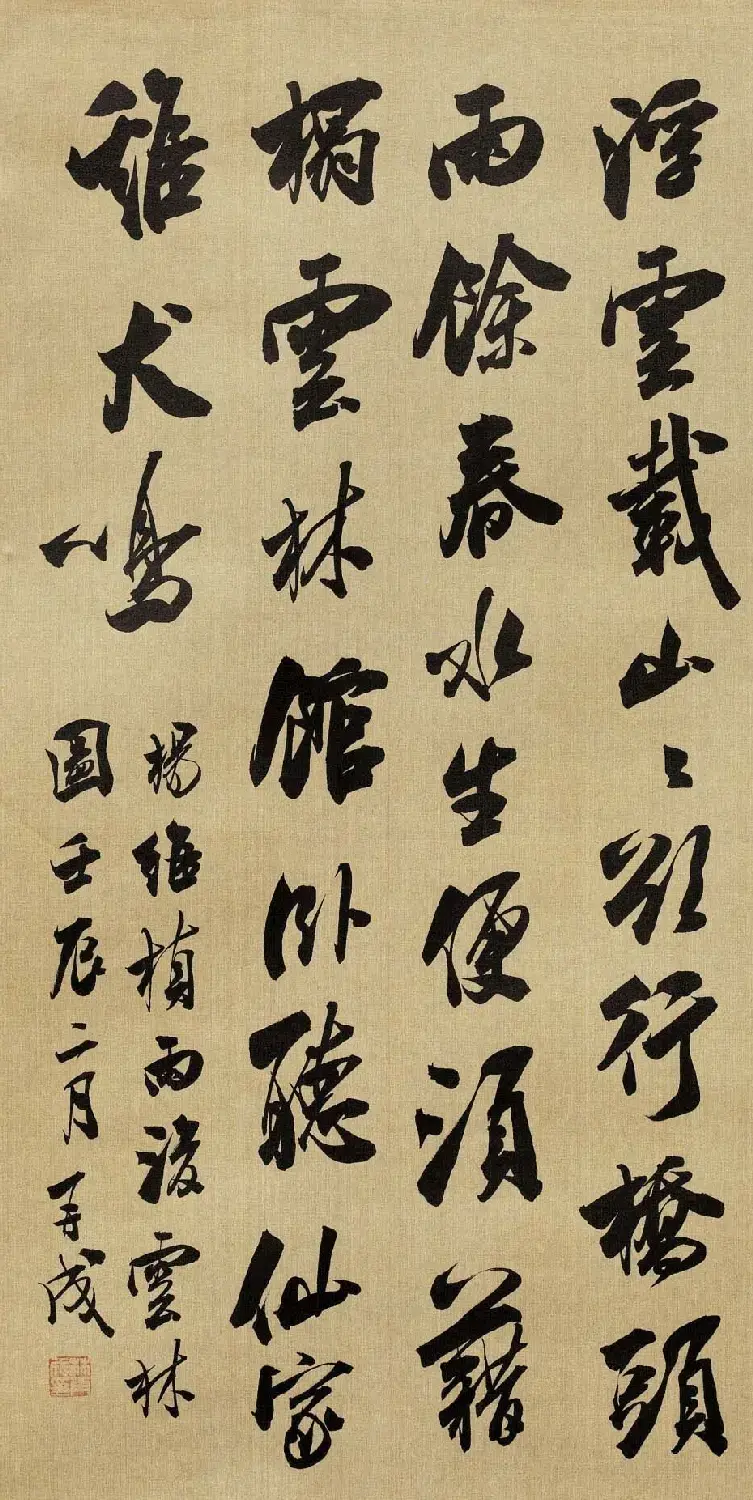 浮雲載山〻欲行橋頭
雨餘春水生便須藉
榻雲林館卧聽仙家
雞犬鳴
楊維楨雨後雲林
圖壬辰二月